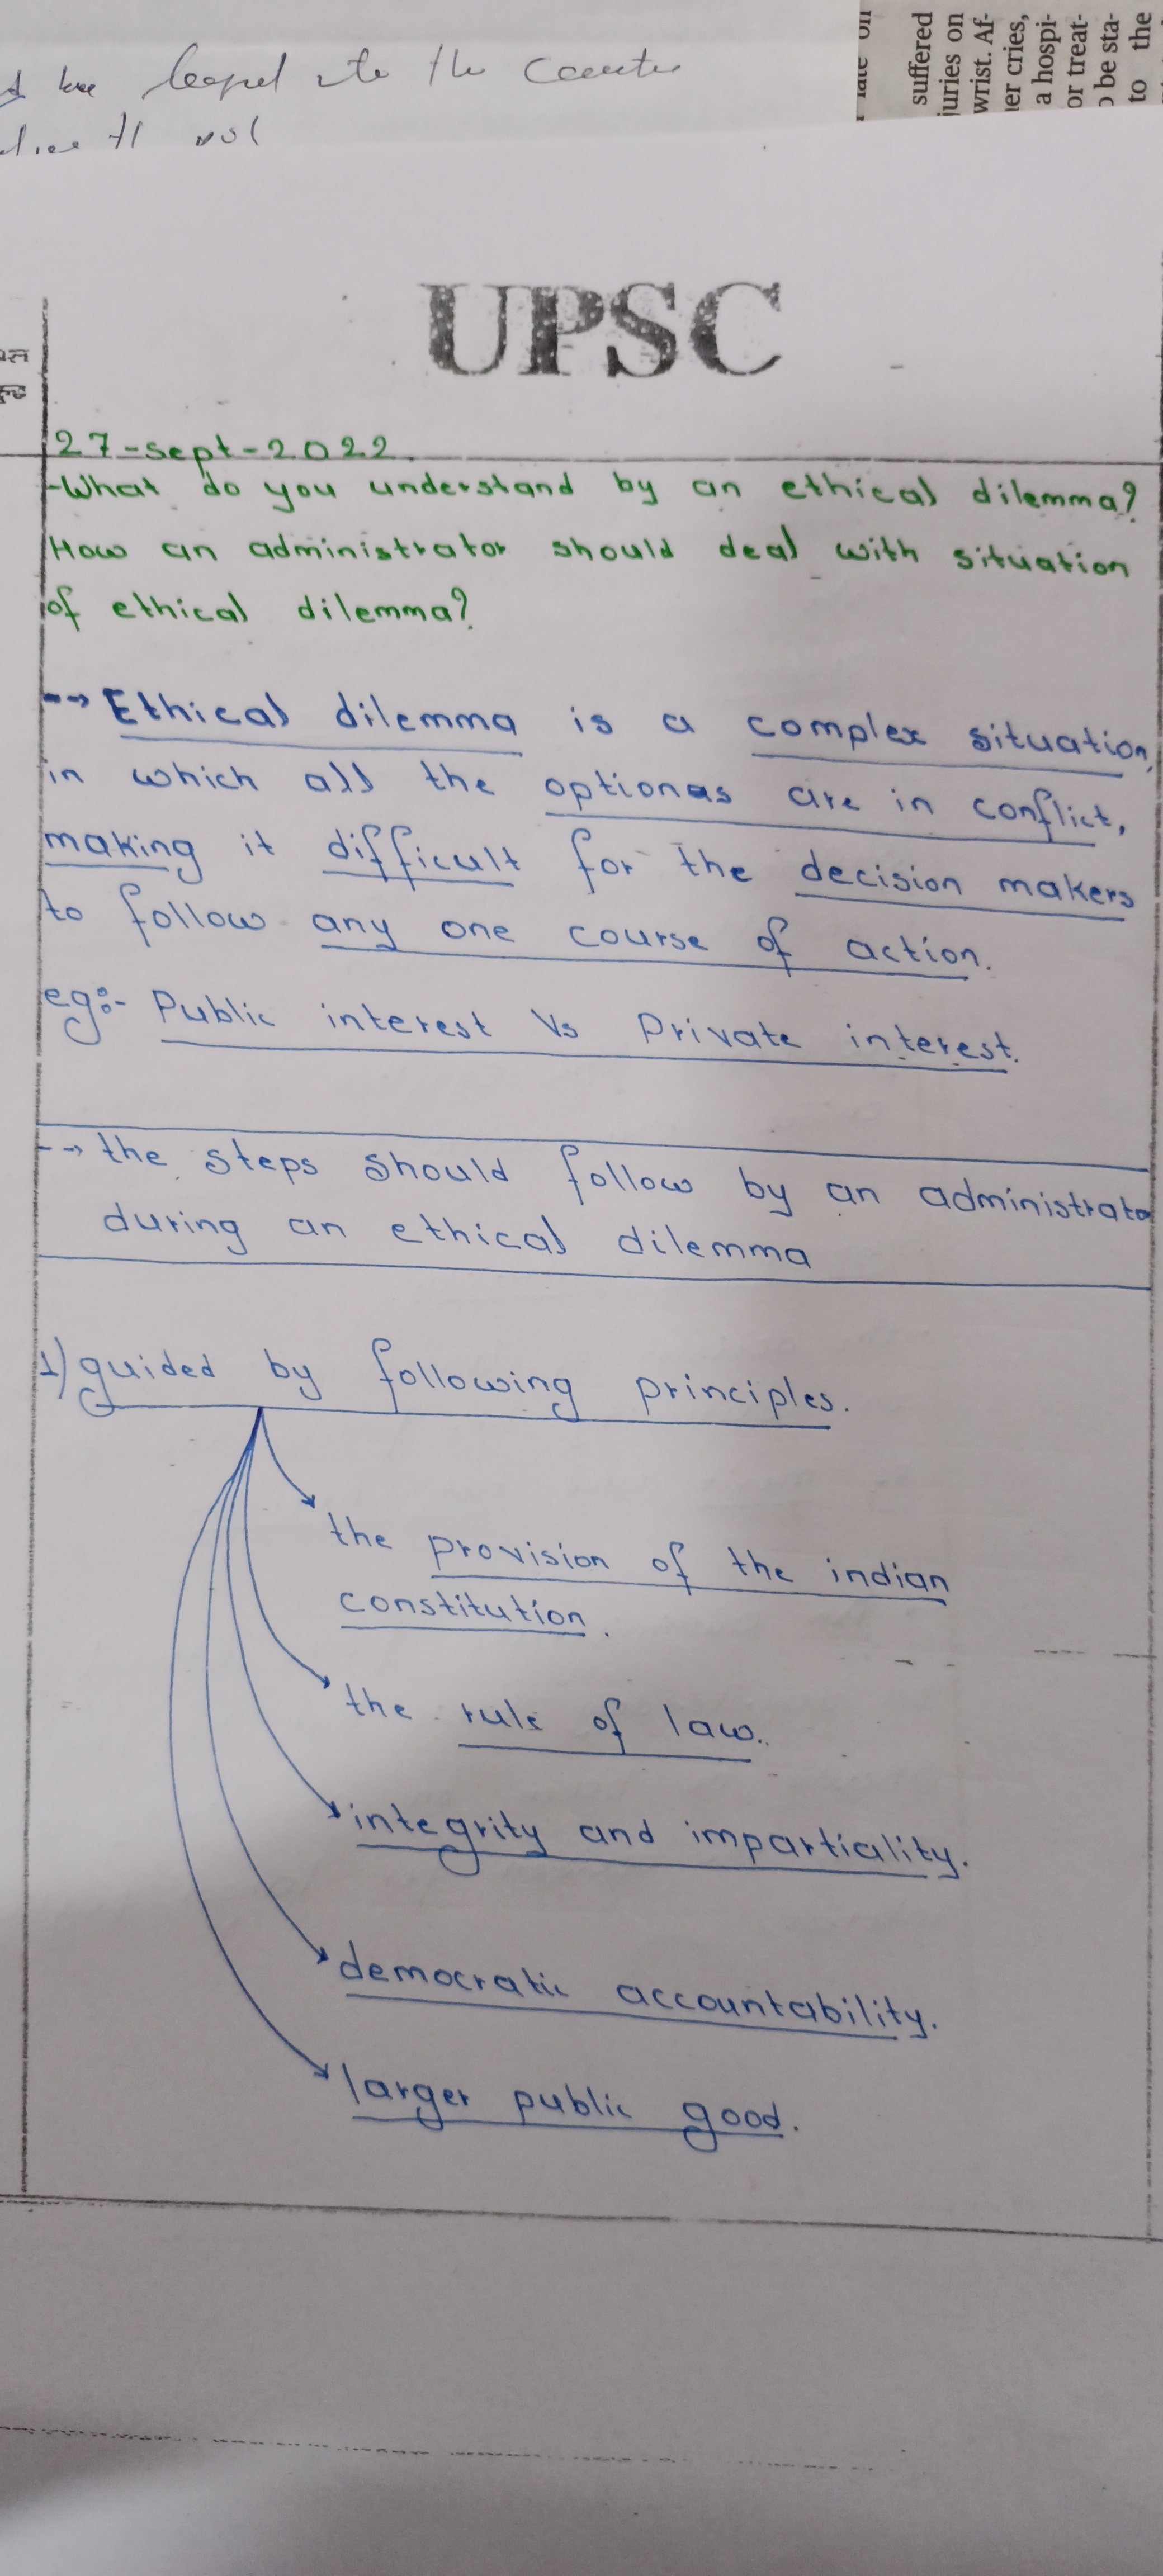 to the
suffered
juries on
wrist. Af-
er cries,
a hospi-
or treat-
be sta-
to the
UPSC
27-sept-2022.
-What do you understand by an ethical dilemma?
How an administrator should deal with situation
of ethical dilemma?
--> Ethical dilemma is a complex situation,
in which all the optionas are in conflict,
making it difficult for the decision makers
to follow any one course of action.
eg:- Public interest Vs Private interest.
--> the steps should follow by an administrato
during an ethical dilemma
1) guided by following principles.
the provision of the indian
constitution.
the rule of law.
integrity and impartiality.
democratic accountability.
larger public good.